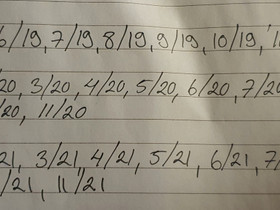 6/19, 7/19, 8/19, 9/19, 10/19,
20, 3/20, 4/20, 5/20, 6/20, 7/20
/20, 11/20
21, 3/21, 4/21, 5/21, 6/21, 7/
/21, 11/21